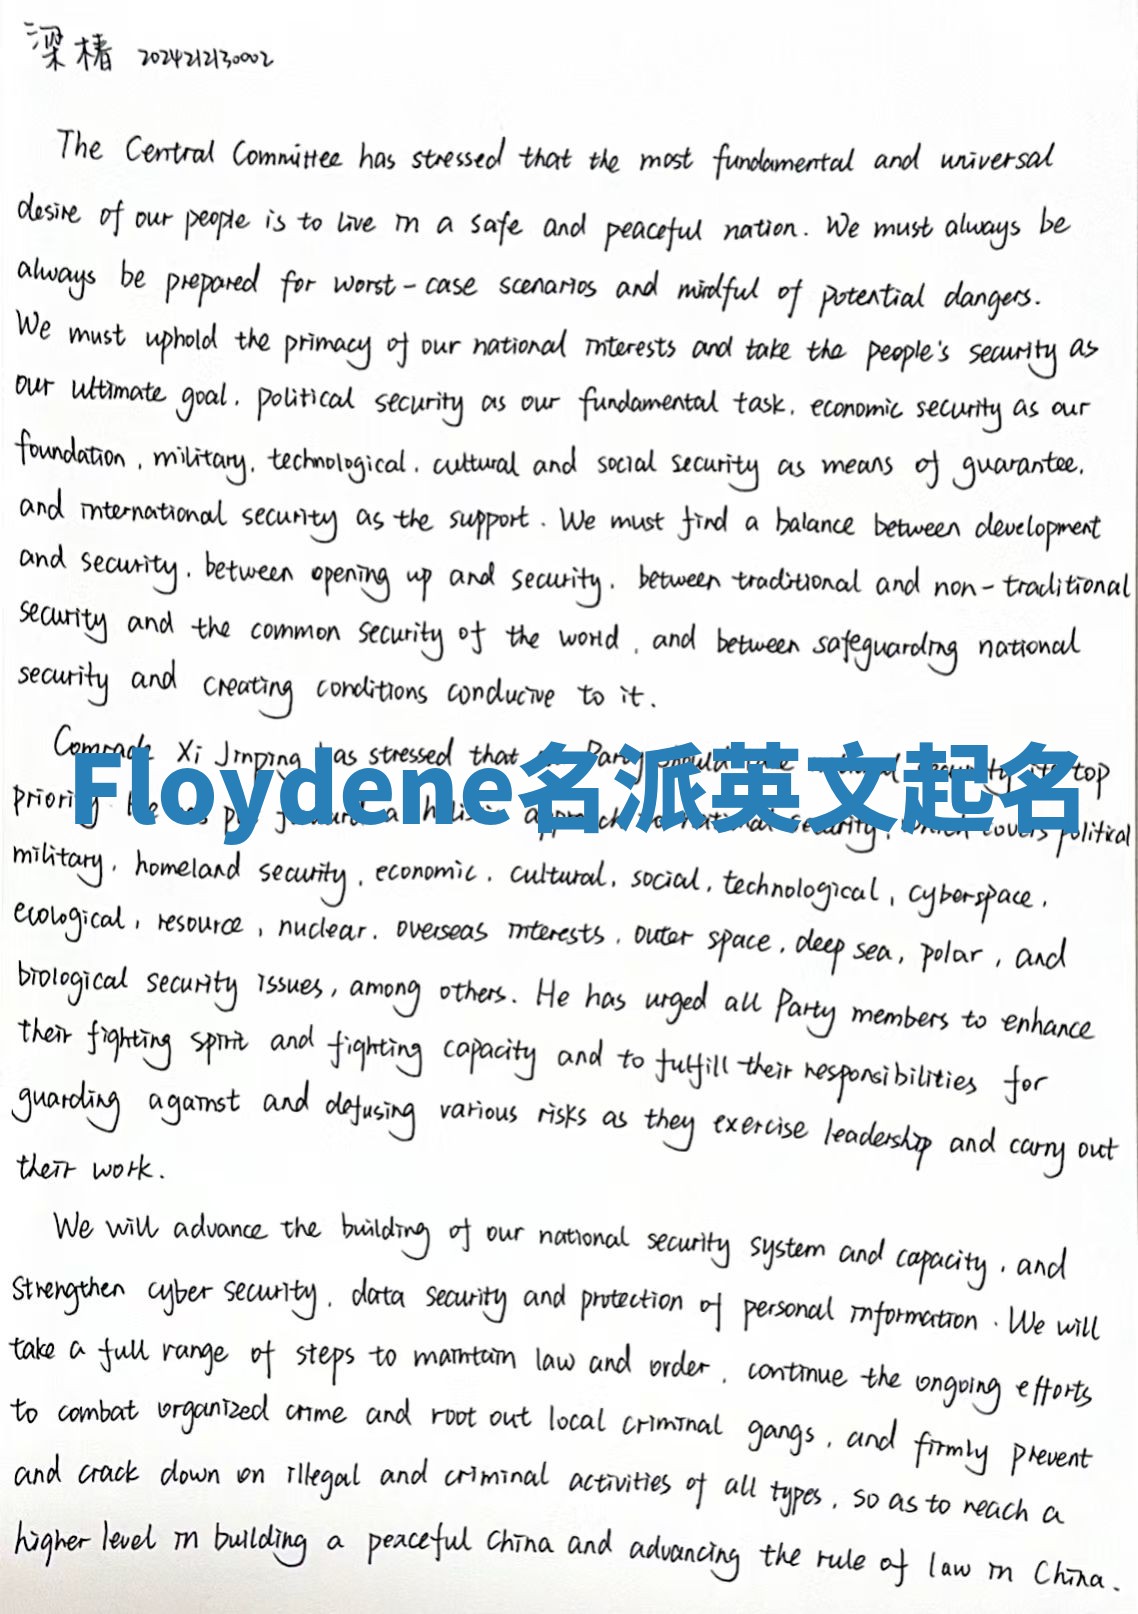 梁椿 2024212130002
The Central Committee has stressed that the most fundamental and universal
desire of our people is to live in a safe and peaceful nation. We must always be
always be prepared for worst-case scenarios and mindful of potential dangers.
We must uphold the primacy of our national interests and take the people's security as
our ultimate goal, political security as our fundamental task, economic security as our
foundation, military, technological, cultural and social security as means of guarantee,
and international security as the support. We must find a balance between development
and security, between opening up and security, between traditional and non-traditional
security and the common security of the world, and between safeguarding national
security and creating conditions conducive to it.
Comrade Xi Jinping has stressed that Party should security its top
Floydene名派英文起名
priority. He has put forward a holistic approach to national security, which covers political
military, homeland security, economic, cultural, social, technological, cyberspace,
ecological, resource, nuclear, overseas interests, outer space, deep sea, polar, and
biological security issues, among others. He has urged all Party members to enhance
their fighting spirit and fighting capacity and to fulfill their responsibilities for
guarding against and defusing various risks as they exercise leadership and carry out
their work.
We will advance the building of our national security system and capacity, and
strengthen cyber security, data security and protection of personal information. We will
take a full range of steps to maintain law and order, continue the ongoing efforts
to combat organized crime and root out local criminal gangs, and firmly prevent
and crack down on illegal and criminal activities of all types, so as to reach a
higher level in building a peaceful China and advancing the rule of law in China.